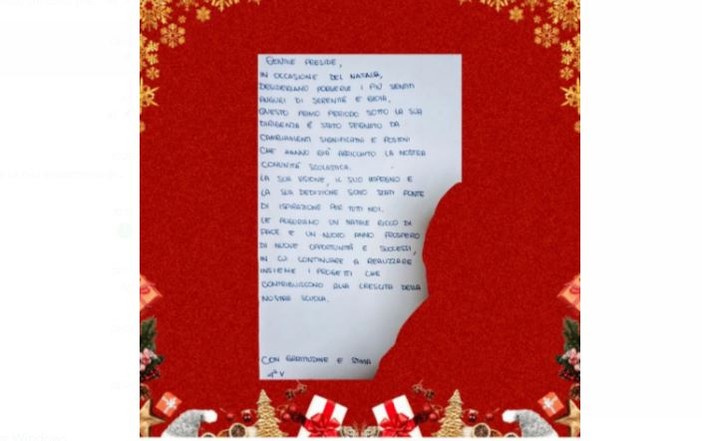 GENTILE PRESIDE,
IN OCCASIONE DEL NATALE,
DESIDERIAMO PORGERLE I PIÙ SENTITI
AUGURI DI SERENITÀ E GIOIA.
QUESTO PRIMO PERIODO SOTTO LA SUA
DIRIGENZA È STATO SEGNATO DA
CAMBIAMENTI SIGNIFICATIVI E POSITIVI
CHE HANNO GIÀ ARRICCHITO LA NOSTRA
COMUNITÀ SCOLASTICA.
LA SUA VISIONE, IL SUO IMPEGNO E
LA SUA DEDIZIONE SONO STATI FONTE
DI ISPIRAZIONE PER TUTTI NOI.
LE AUGURIAMO UN NATALE RICCO DI
PACE E UN NUOVO ANNO PROSPERO
DI NUOVE OPPORTUNITÀ E SUCCESSI,
IN CUI CONTINUARE A REALIZZARE
INSIEME I PROGETTI CHE
CONTRIBUISCONO ALLA CRESCITA DELLA
NOSTRA SCUOLA.
CON GRATITUDINE E STIMA